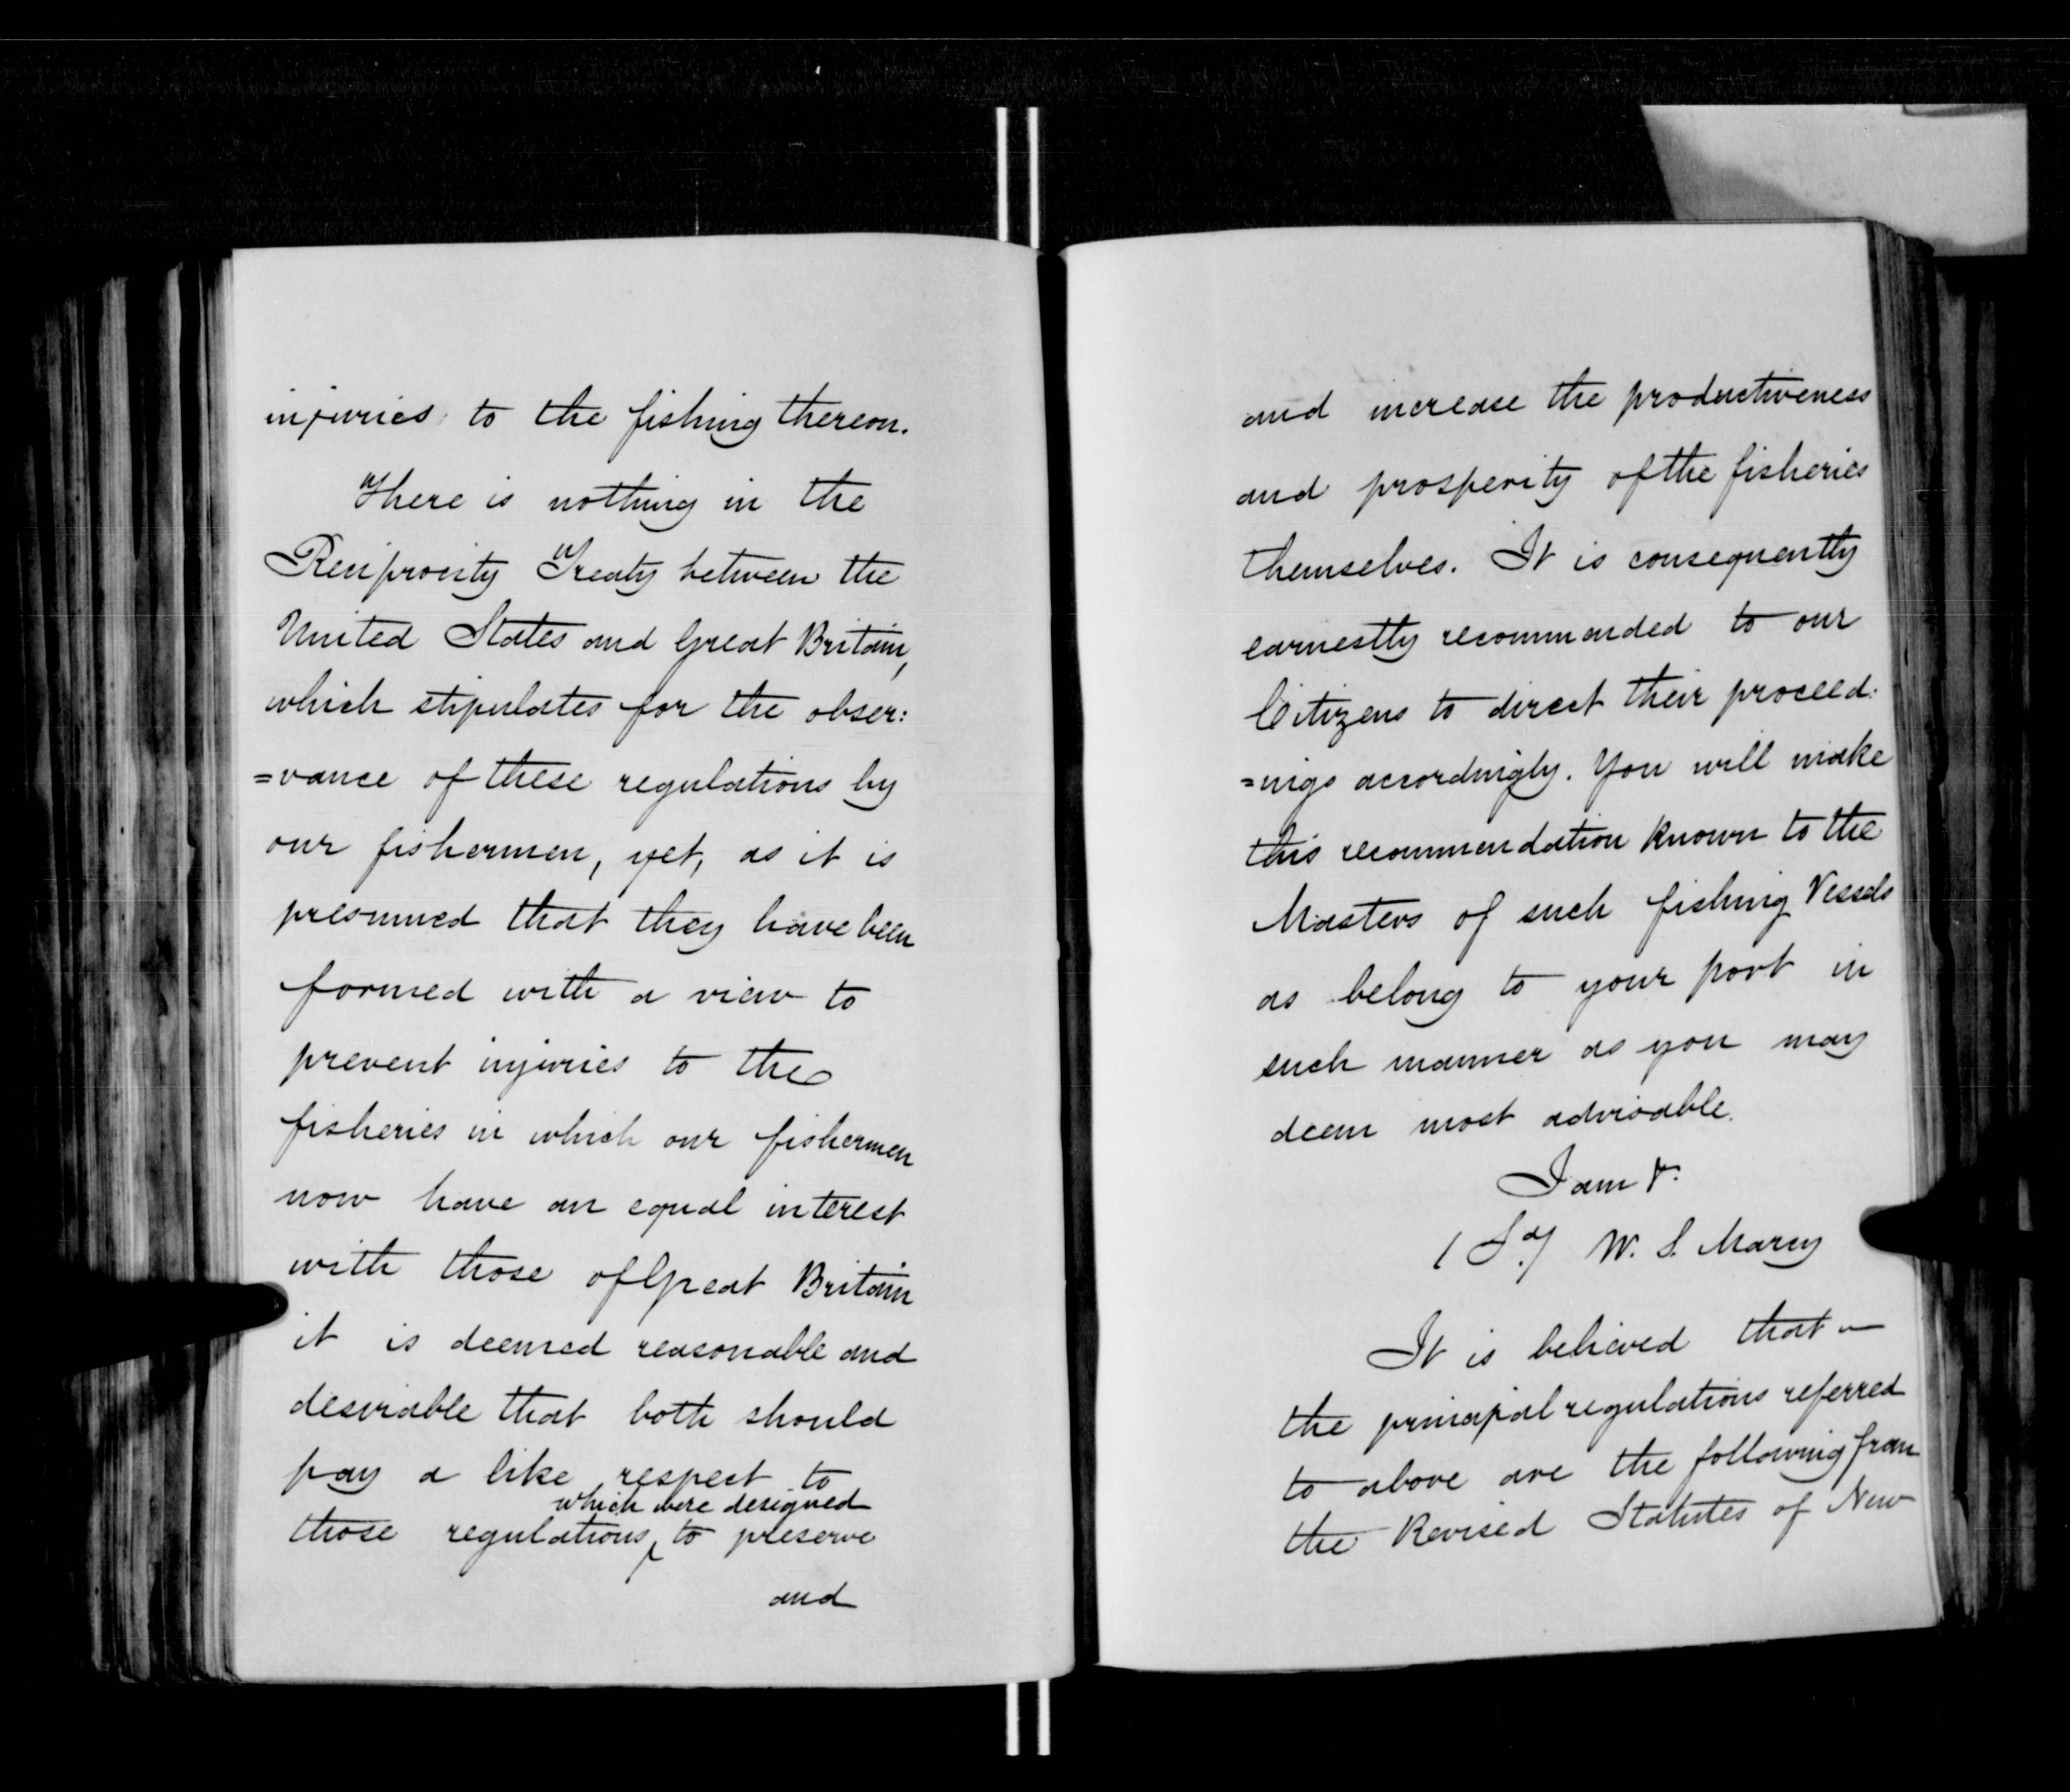 injuries to the fishing thereon.
There is nothing in the
Reciprocity Treaty between the
United States and Great Britain,
which stipulates for the obser:
=vance of these regulations by
our fishermen, yet, as it is
presumed that they have been
formed with a view to
prevent injuries to the
fisheries in which our fishermen
now have an equal interest
with those of Great Britain
it is deemed reasonable and
desirable that both should
pay a like respect to
which were designed
those regulations ‸ to preserve
and
and increase the productiveness
and prosperity of the fisheries
themselves. It is consequently
earnestly recommended to our
Citizens to direct their proceed:
=ings accordingly. You will make
this recommendation known to the
Masters of such fishing Vessels
as belong to your port in
such manner as you may
deem most advisable.
I am &.
(Sd) W. S. Marcy
It is believed that
the principal regulations referred
to above are the following from
the Revised Statutes of New